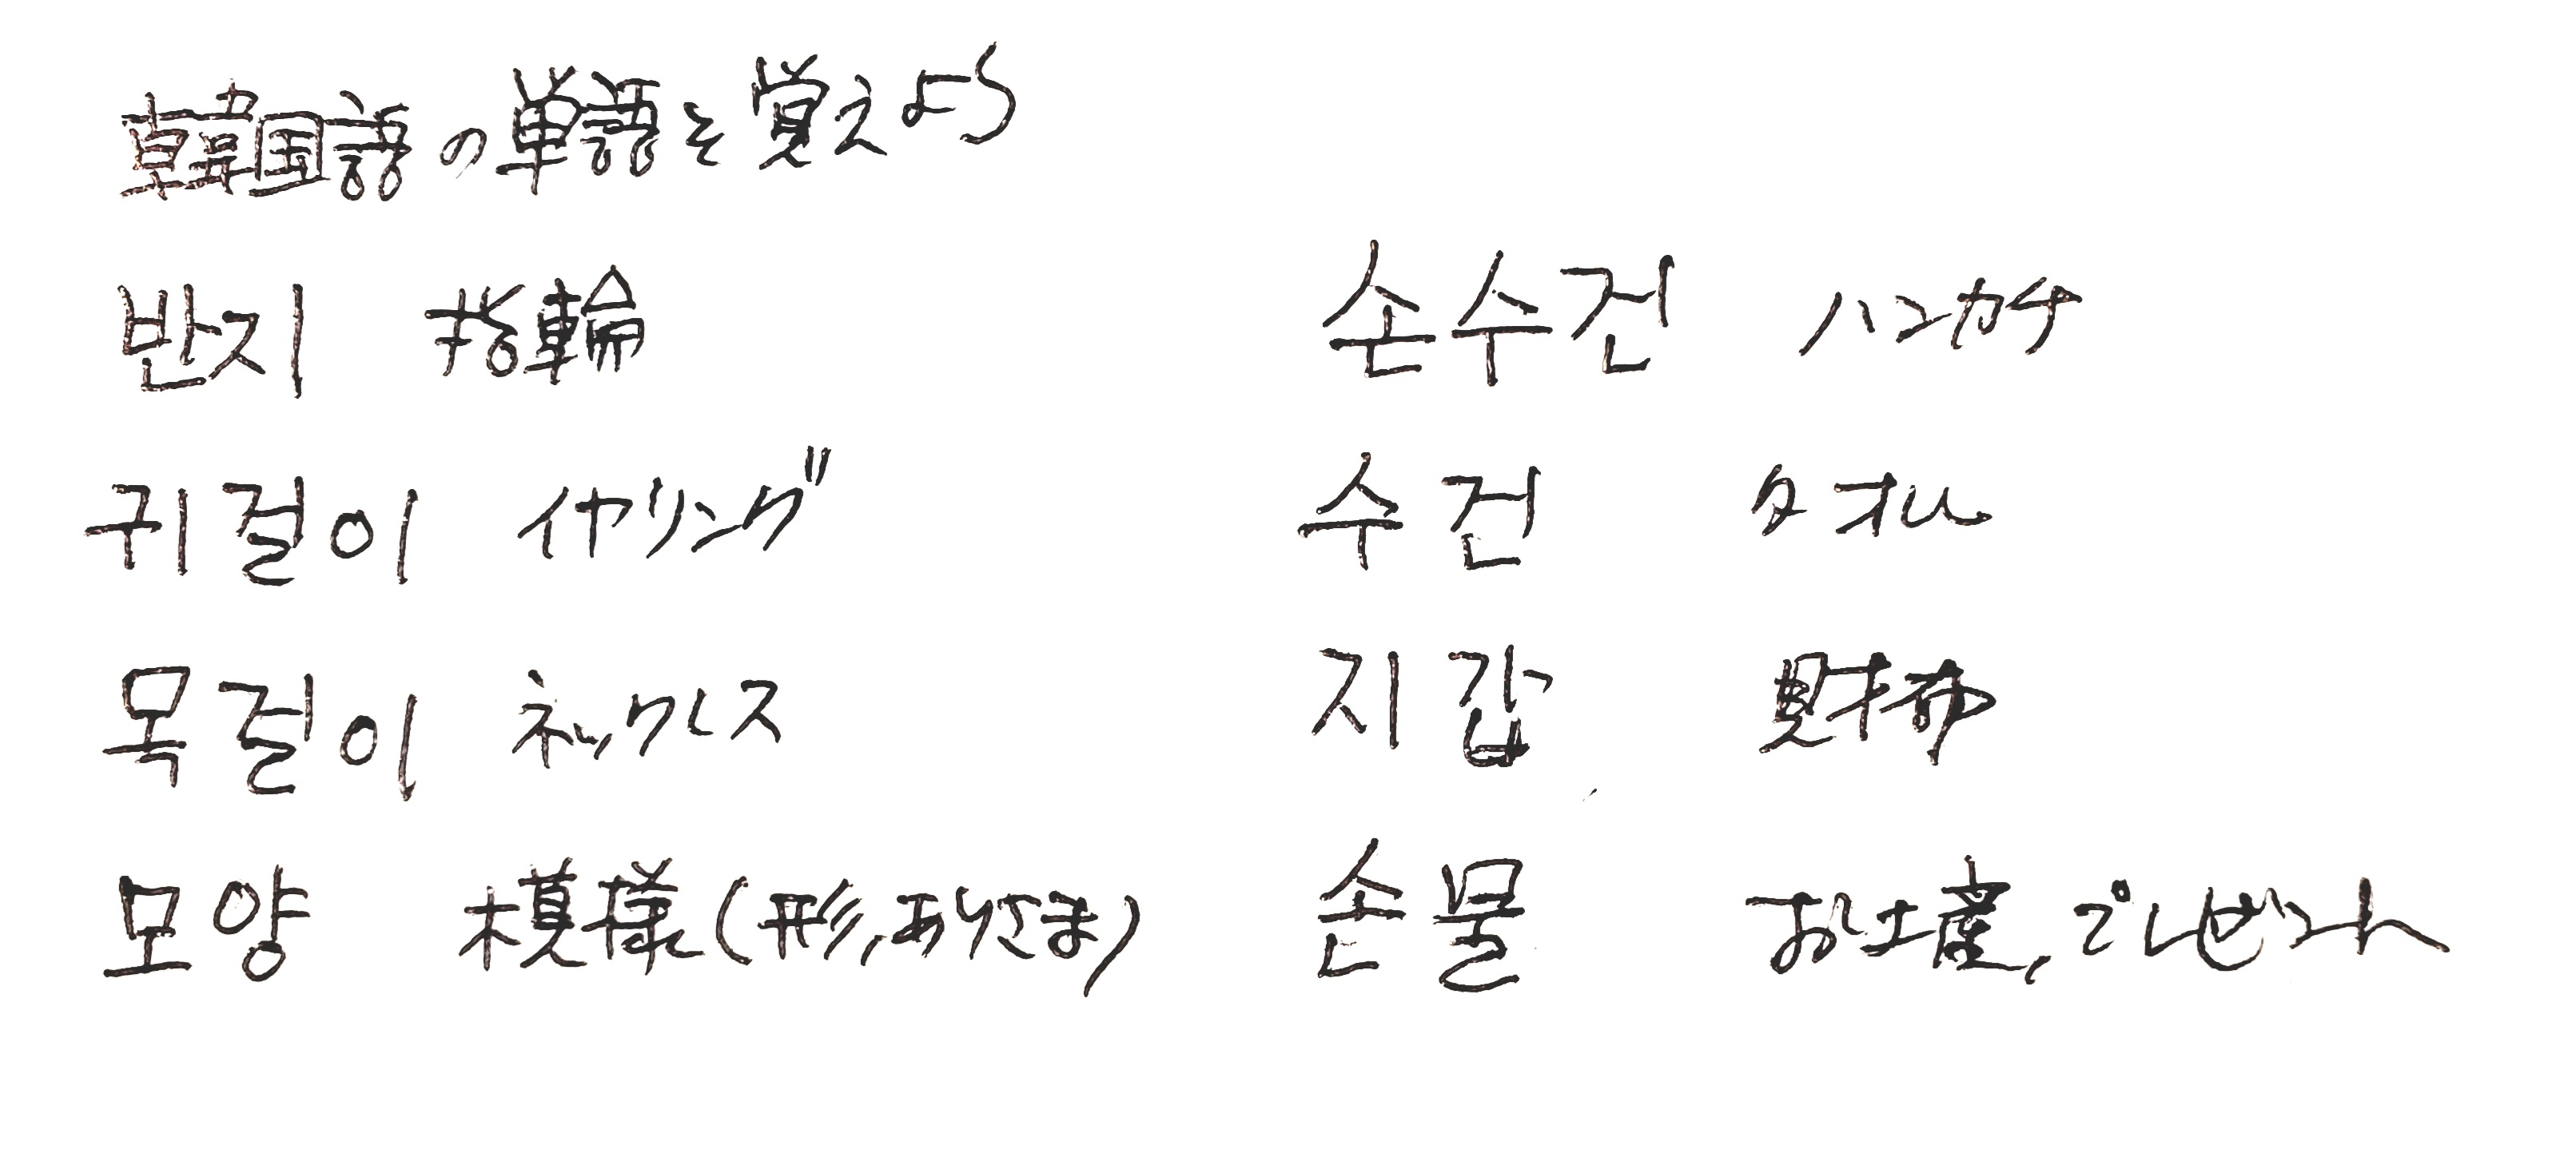 韓国語の単語を覚えよう
반지 指輪
귀걸이 イヤリング
목걸이 ネックレス
모양 模様(形,ありさま)
손수건 ハンカチ
수건 タオル
지갑 財布
손물 お土産,プレゼント